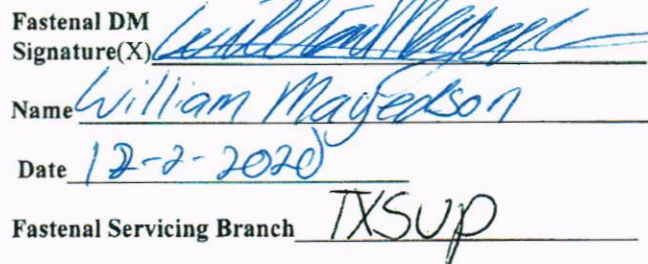 Fastenal DM
Signature(X)
Name William Mayedson
Date 12-2-2020
Fastenal Servicing Branch TXSUP